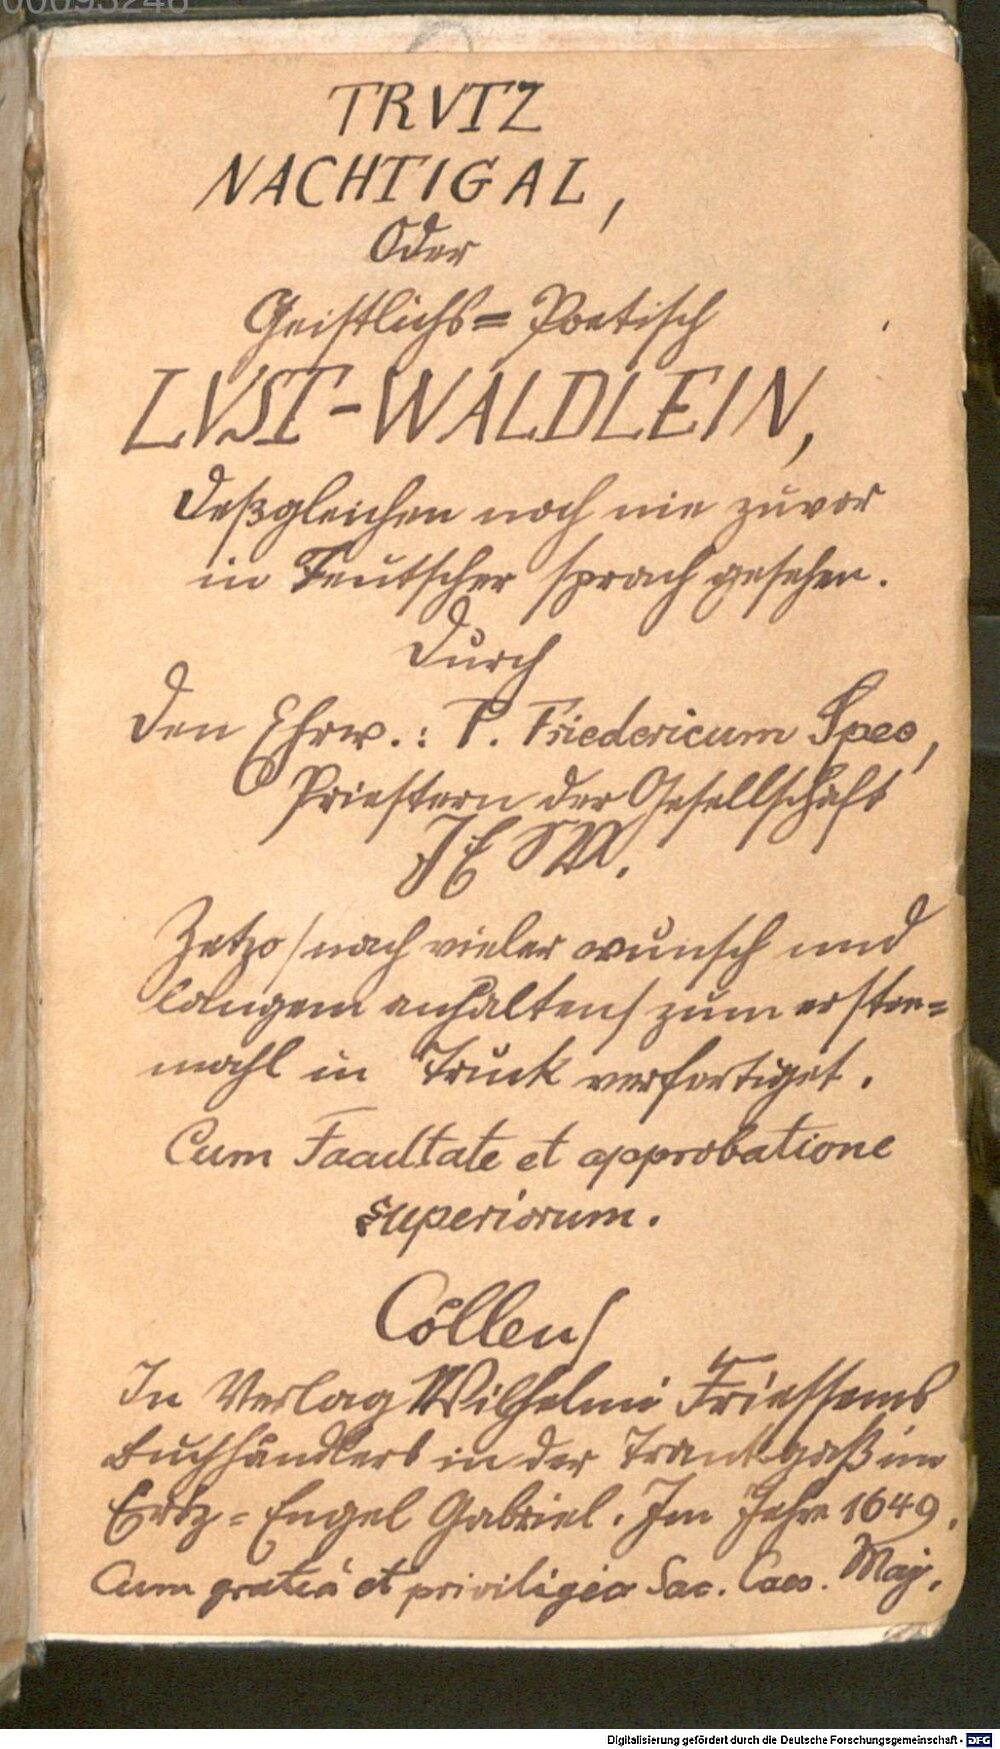 00093246
TRVTZ
NACHTIGAL,
Oder
Geistlichs= Poetisch
LVST-WÄLDLEIN,
Deßgleichen noch nie zuvor
in Teutscher sprach gesehen.
Durch
Den Ehrw.: P. Friedericum Spee,
Priestern der Gesellschaft
JESU.
Jetzo / nach vieler wunsch und
langem anhalten / zum ersten=
mahl in Truck verfertiget.
Cum Facultate et approbatione
superiorum.
Cöllen /
In Verlag Wilhelmi Friessems
Buchhändlers in der Tranckgaß im
Ertz=Engel Gabriel. Im Jahr 1649.
Cum gratiâ et priviligio Sac. Caes. Maj.
Digitalisierung gefördert durch die Deutsche Forschungsgemeinschaft - DFG